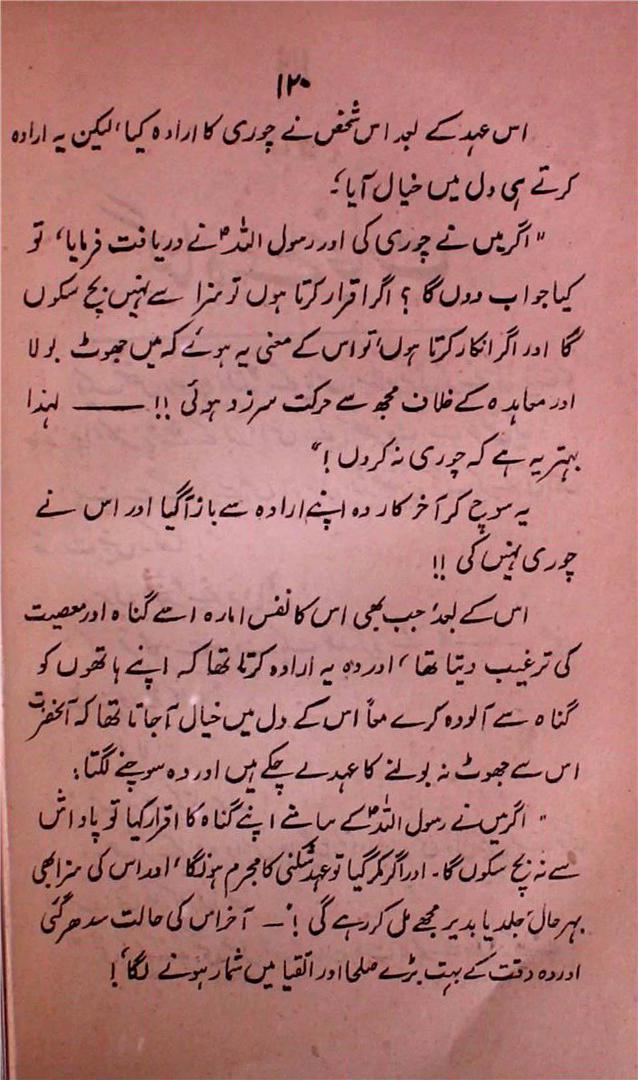 ۱۲۰
اس عہد کے بعد اس شخص نے چوری کا ارادہ کیا، لیکن یہ ارادہ
کرتے ہی دل میں خیال آیا،۔
"اگر میں نے چوری کی اور رسول اللہؐ نے دریافت فرمایا، تو
کیا جواب دوں گا؟ اگر اقرار کرتا ہوں تو سزا سے نہیں بچ سکوں
گا اور اگر انکار کرتا ہوں، تو اس کے معنی یہ ہوئے کہ میں جھوٹ بولا
اور معاہدہ کے خلاف مجھ سے حرکت سرزد ہوئی !! ـــــ لہٰذا
بہتر یہ ہے کہ چوری نہ کروں !"
یہ سوچ کر آخر کار وہ اپنے ارادہ سے باز آگیا اور اس نے
چوری نہیں کی !!
اس کے بعد، جب بھی اس کا نفس امارہ اسے گناہ اور معصیت
کی ترغیب دیتا تھا، اور وہ یہ ارادہ کرتا تھا کہ اپنے ہاتھوں کو
گناہ سے آلودہ کرے معاً اس کے دل میں خیال آجاتا تھا کہ آنحضرتؐ
اس سے جھوٹ نہ بولنے کا عہد لے چکے ہیں اور وہ سوچنے لگتا؛
"اگر میں نے رسول اللہؐ کے سامنے اپنے گناہ کا اقرار کیا تو پاداش
سے نہ بچ سکوں گا۔ اور اگر مکر گیا تو عہد شکنی کا مجرم ہونگا، اور اس کی سزا بھی
بہر حال، جلد یا بدیر مجھے مل کر رہے گی !" ـ آخر اس کی حالت سدھر گئی
اور وہ وقت کے بہت بڑے صلحا اور اتقیا میں شمار ہونے لگا، !